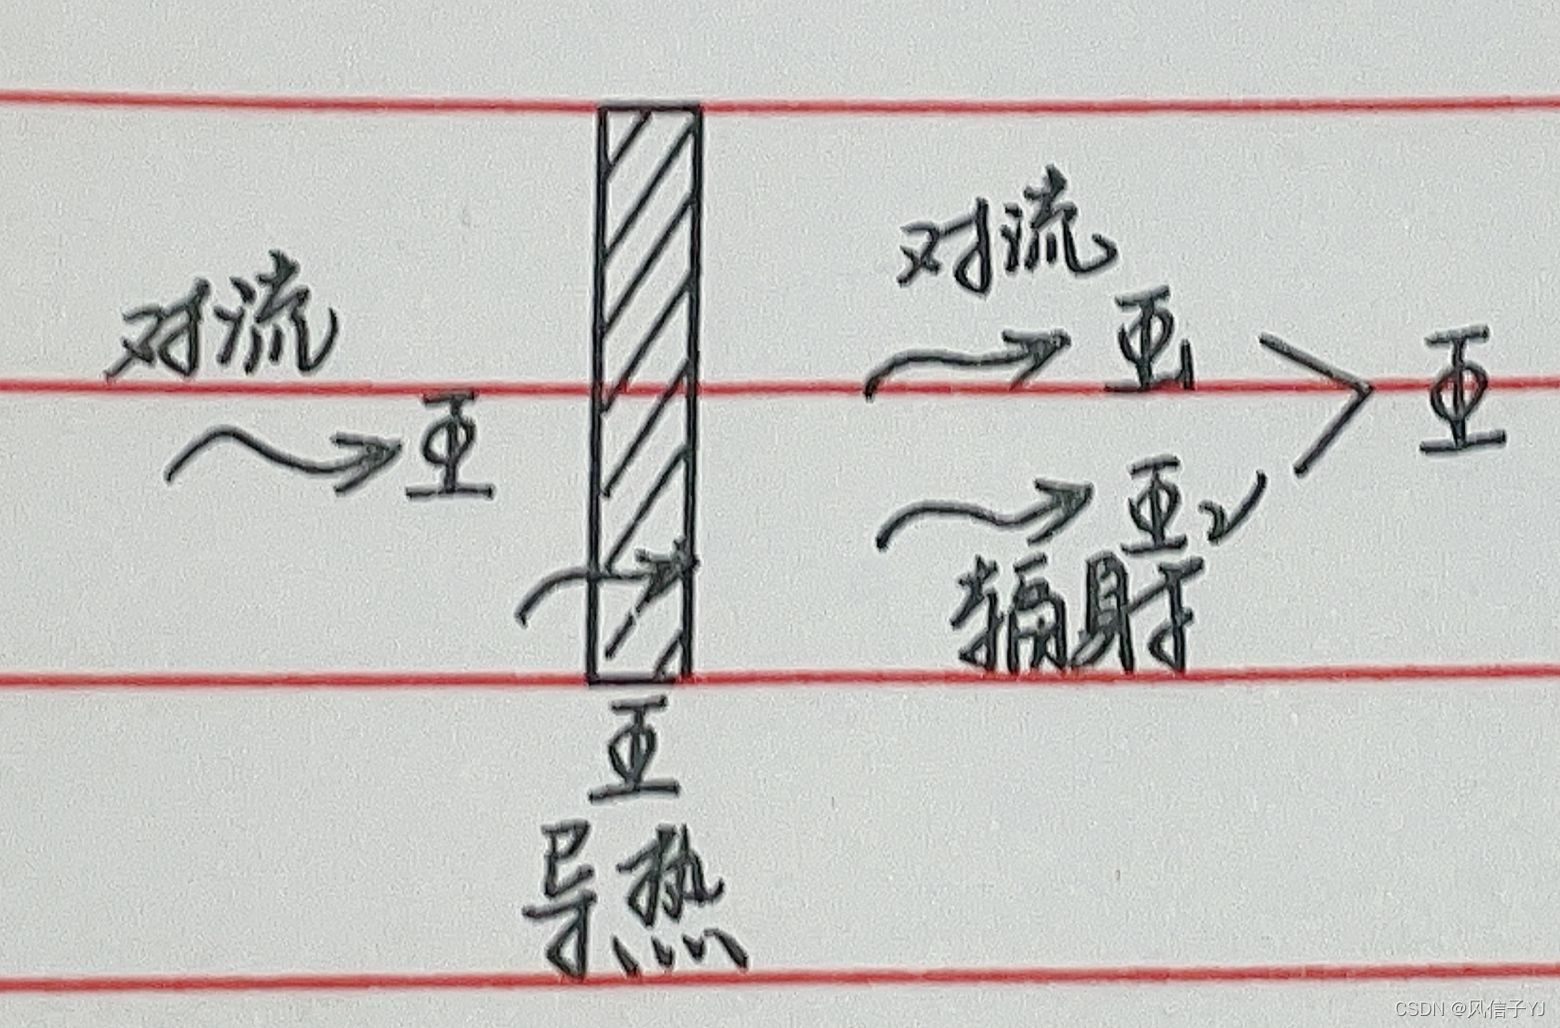 对流
Φ
对流
Φ1
Φ
Φ2
辐射
Φ
导热
CSDN @风信子YJ